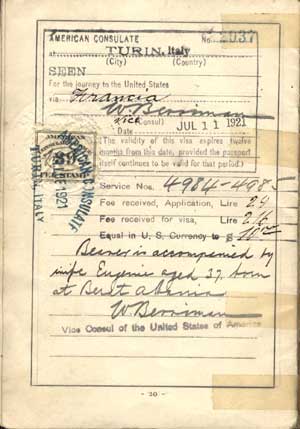 AMERICAN CONSULATE No. 2037
at TURIN, Italy
(City) (Country)
SEEN
For the journey to the United States
via Francia
W. Berriman
Vice (Consul)
Date JUL 11 1921
The validity of this visa expires twelve
months from this date, provided the passport
itself continues to be valid for that period.
AMERICAN
FEE STAMP
AMERICAN CONSULATE
1921
TURIN, ITALY
Service Nos. 4984-4985
Fee received, Application, Lire 24
Fee received for visa, Lire 216
Equal in U, S, Currency to $ 10.00
Bearer is accompanied by
wife Eugenie aged 37, born
at
W. Berriman
Vice Consul of the United States of America
- 20 -